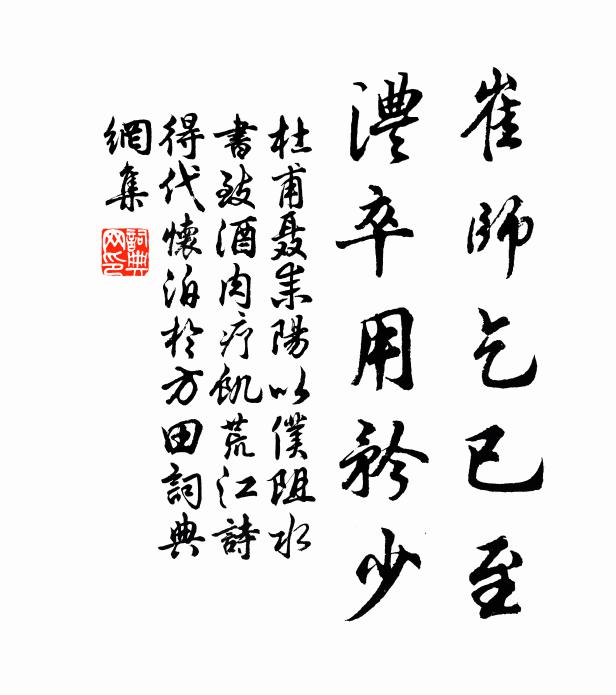 崔師乞已至
澧卒用矜少
杜甫聂耒陽以僕阻水
書致酒肉疗飢荒江詩
得代懷泊於方田詞典
網集
詞典網印